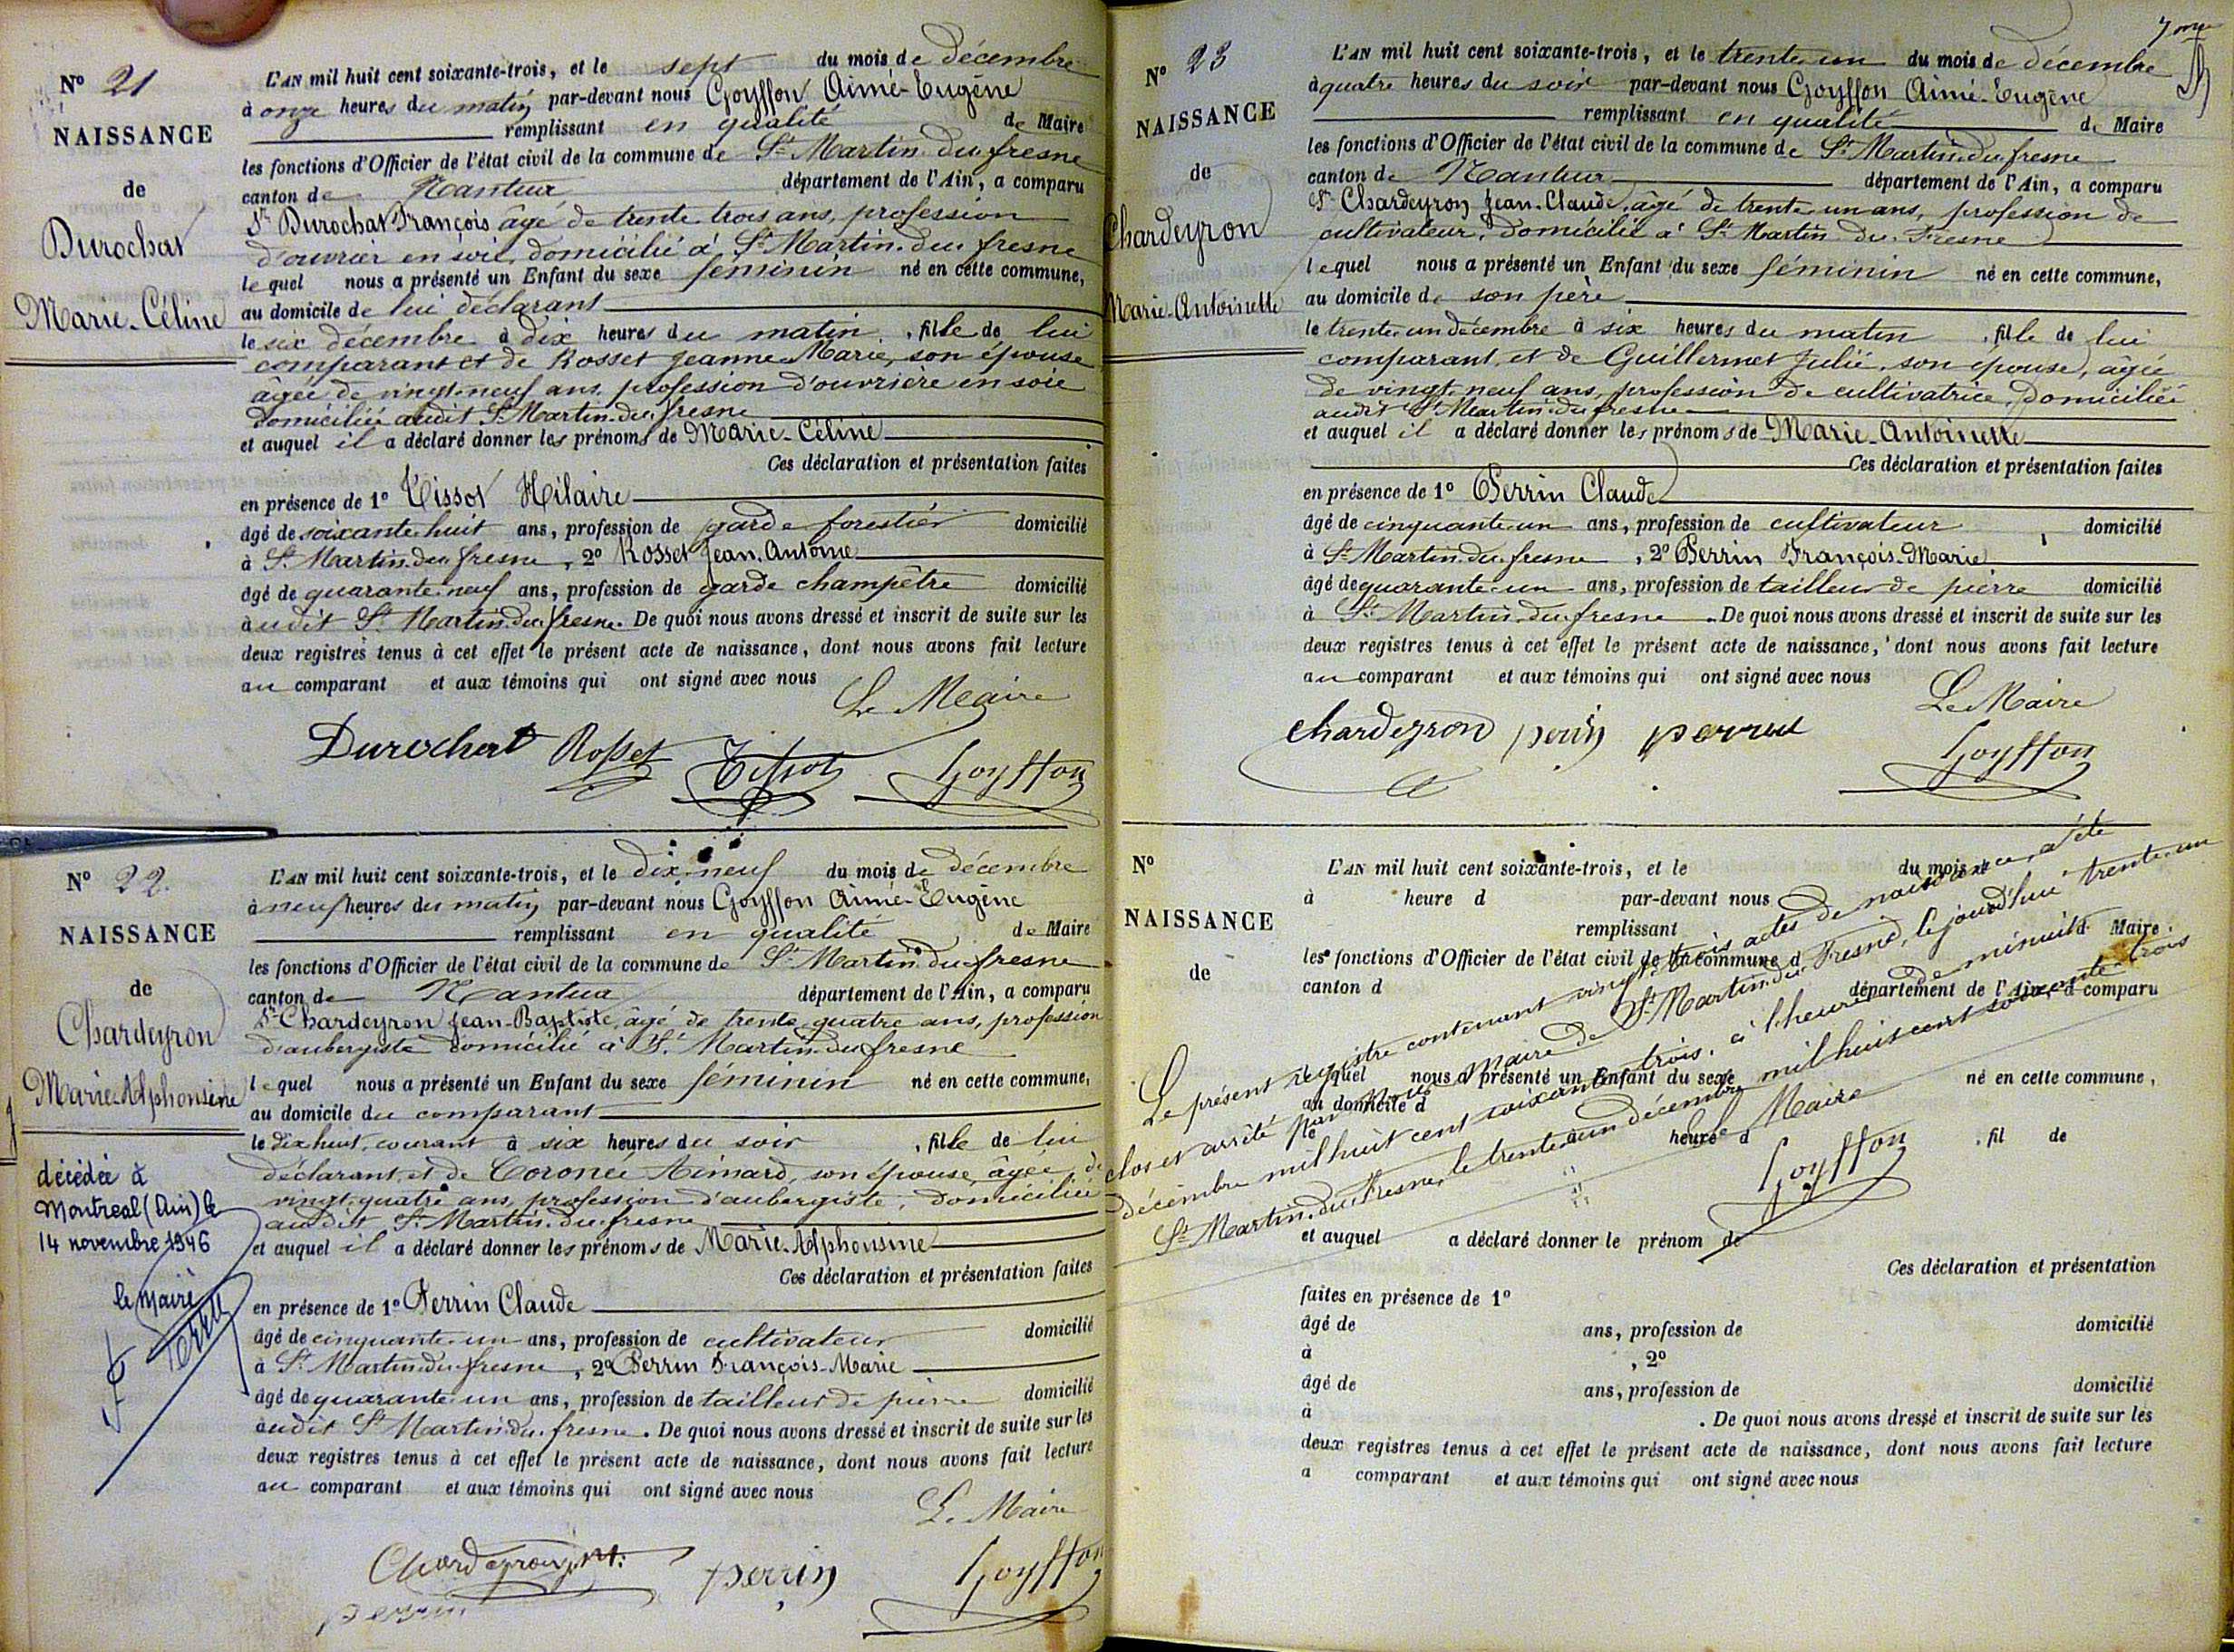 N° 21
NAISSANCE
de
Durochat
Marie-Céline
L'AN mil huit cent soixante-trois, et le sept du mois de décembre
à onze heures du matin par-devant nous Goyffon Aimé-Eugène
remplissant en qualité de Maire
les fonctions d'Officier de l'état civil de la commune de St Martin-du-fresne
canton de Nantua département de l'Ain, a comparu
Sr Durochat François âgé de trente-trois ans, profession
d'ouvrier en soie, domicilié à St Martin-du-fresne
lequel nous a présenté un Enfant du sexe féminin né en cette commune,
au domicile de lui déclarant
le six décembre à dix heures du matin, fille de lui
comparant et de Rosset Jeanne-Marie, son épouse
âgée de vingt-neuf ans, profession d'ouvrière en soie
domiciliée audit St Martin-du-fresne
et auquel il a déclaré donner les prénoms de Marie-Céline
Ces déclaration et présentation faites
en présence de 1° Tissot Hilaire
âgé de soixante-huit ans, profession de garde forestier domicilié
à St Martin-du-fresne, 2° Rosset Jean-Antoine
âgé de quarante-neuf ans, profession de garde champêtre domicilié
audit St Martin-du-fresne. De quoi nous avons dressé et inscrit de suite sur les
deux registres tenus à cet effet le présent acte de naissance, dont nous avons fait lecture
au comparant et aux témoins qui ont signé avec nous
Le Maire
Durochat Rosset Tissot Goyffon
N° 22.
NAISSANCE
de
Chardeyron
Marie-Alphonsine
décédée à
Montreal (Ain) le
14 novembre 1946
le maire
L'AN mil huit cent soixante-trois, et le dix-neuf du mois de décembre
à neuf heures du matin par-devant nous Goyffon Aimé-Eugène
remplissant en qualité de Maire
les fonctions d'Officier de l'état civil de la commune de St Martin-du-fresne
canton de Nantua département de l'Ain, a comparu
Sr Chardeyron Jean-Baptiste, âgé de trente-quatre ans, profession
d'aubergiste domicilié à St Martin-du-fresne
lequel nous a présenté un Enfant du sexe féminin né en cette commune,
au domicile du comparant
le dix-huit, courant à six heures du soir, fille de lui
déclarant, et de Coronée Aimard, son épouse, âgée de
vingt-quatre ans, profession d'aubergiste, domiciliée
audit St Martin-du-fresne
et auquel il a déclaré donner les prénoms de Marie-Alphonsine
Ces déclaration et présentation faites
en présence de 1° Perrin Claude
âgé de cinquante-un ans, profession de cultivateur domicilié
à St Martin-du-fresne, 2° Perrin François-Marie
âgé de quarante-un ans, profession de tailleur de pierre domicilié
audit St Martin-du-fresne. De quoi nous avons dressé et inscrit de suite sur les
deux registres tenus à cet effet le présent acte de naissance, dont nous avons fait lecture
au comparant et aux témoins qui ont signé avec nous
Le Maire
Chardeyron perrin Goyffon
perrin
N° 23
NAISSANCE
de
Chardeyron
Marie-Antoinette
L'AN mil huit cent soixante-trois, et le trente-un du mois de décembre
à quatre heures du soir par-devant nous Goyffon Aimé-Eugène
remplissant en qualité de Maire
les fonctions d'Officier de l'état civil de la commune de St Martin-du-fresne
canton de Nantua département de l'Ain, a comparu
Sr Chardeyron Jean-Claude, âgé de trente-un ans, profession de
cultivateur, domicilié à St Martin-du-Fresne
lequel nous a présenté un Enfant du sexe féminin né en cette commune,
au domicile de son père
le trente-un décembre à six heures du matin, fille de lui
comparant, et de Guillermet Julie, son épouse, âgée
de vingt-neuf ans, profession de cultivatrice, domiciliée
audit St Martin-du-fresne
et auquel il a déclaré donner les prénoms de Marie-Antoinette
Ces déclaration et présentation faites
en présence de 1° Perrin Claude
âgé de cinquante-un ans, profession de cultivateur domicilié
à St Martin-du-fresne, 2° Perrin François-Marie
âgé de quarante-un ans, profession de tailleur de pierre domicilié
à St Martin-du-fresne. De quoi nous avons dressé et inscrit de suite sur les
deux registres tenus à cet effet le présent acte de naissance, dont nous avons fait lecture
au comparant et aux témoins qui ont signé avec nous
Le Maire
chardeyron perrin perrin Goyffon
N°
NAISSANCE
de
L'AN mil huit cent soixante-trois, et le du mois d
à heure d par-devant nous
remplissant d Maire
les fonctions d'Officier de l'état civil de la commune d
canton d département de l'Ain, a comparu
lequel nous a présenté un Enfant du sexe né en cette commune,
au domicile d
le heure d, fil de
et auquel a déclaré donner le prénom de
Ces déclaration et présentation
faites en présence de 1°
âgé de ans, profession de domicilié
à , 2°
âgé de ans, profession de domicilié
à . De quoi nous avons dressé et inscrit de suite sur les
deux registres tenus à cet effet le présent acte de naissance, dont nous avons fait lecture
a comparant et aux témoins qui ont signé avec nous
Le présent registre contenant vingt-trois actes de naissance, a été
clos et arrêté par nous Maire de St Martin-du-Fresne, le jourd'hui trente-un
décembre mil huit cent soixante-trois, à l'heure de minuit.
St Martin-du-Fresne, le trente-un décembre mil huit cent soixante-trois
Le Maire
Goyffon